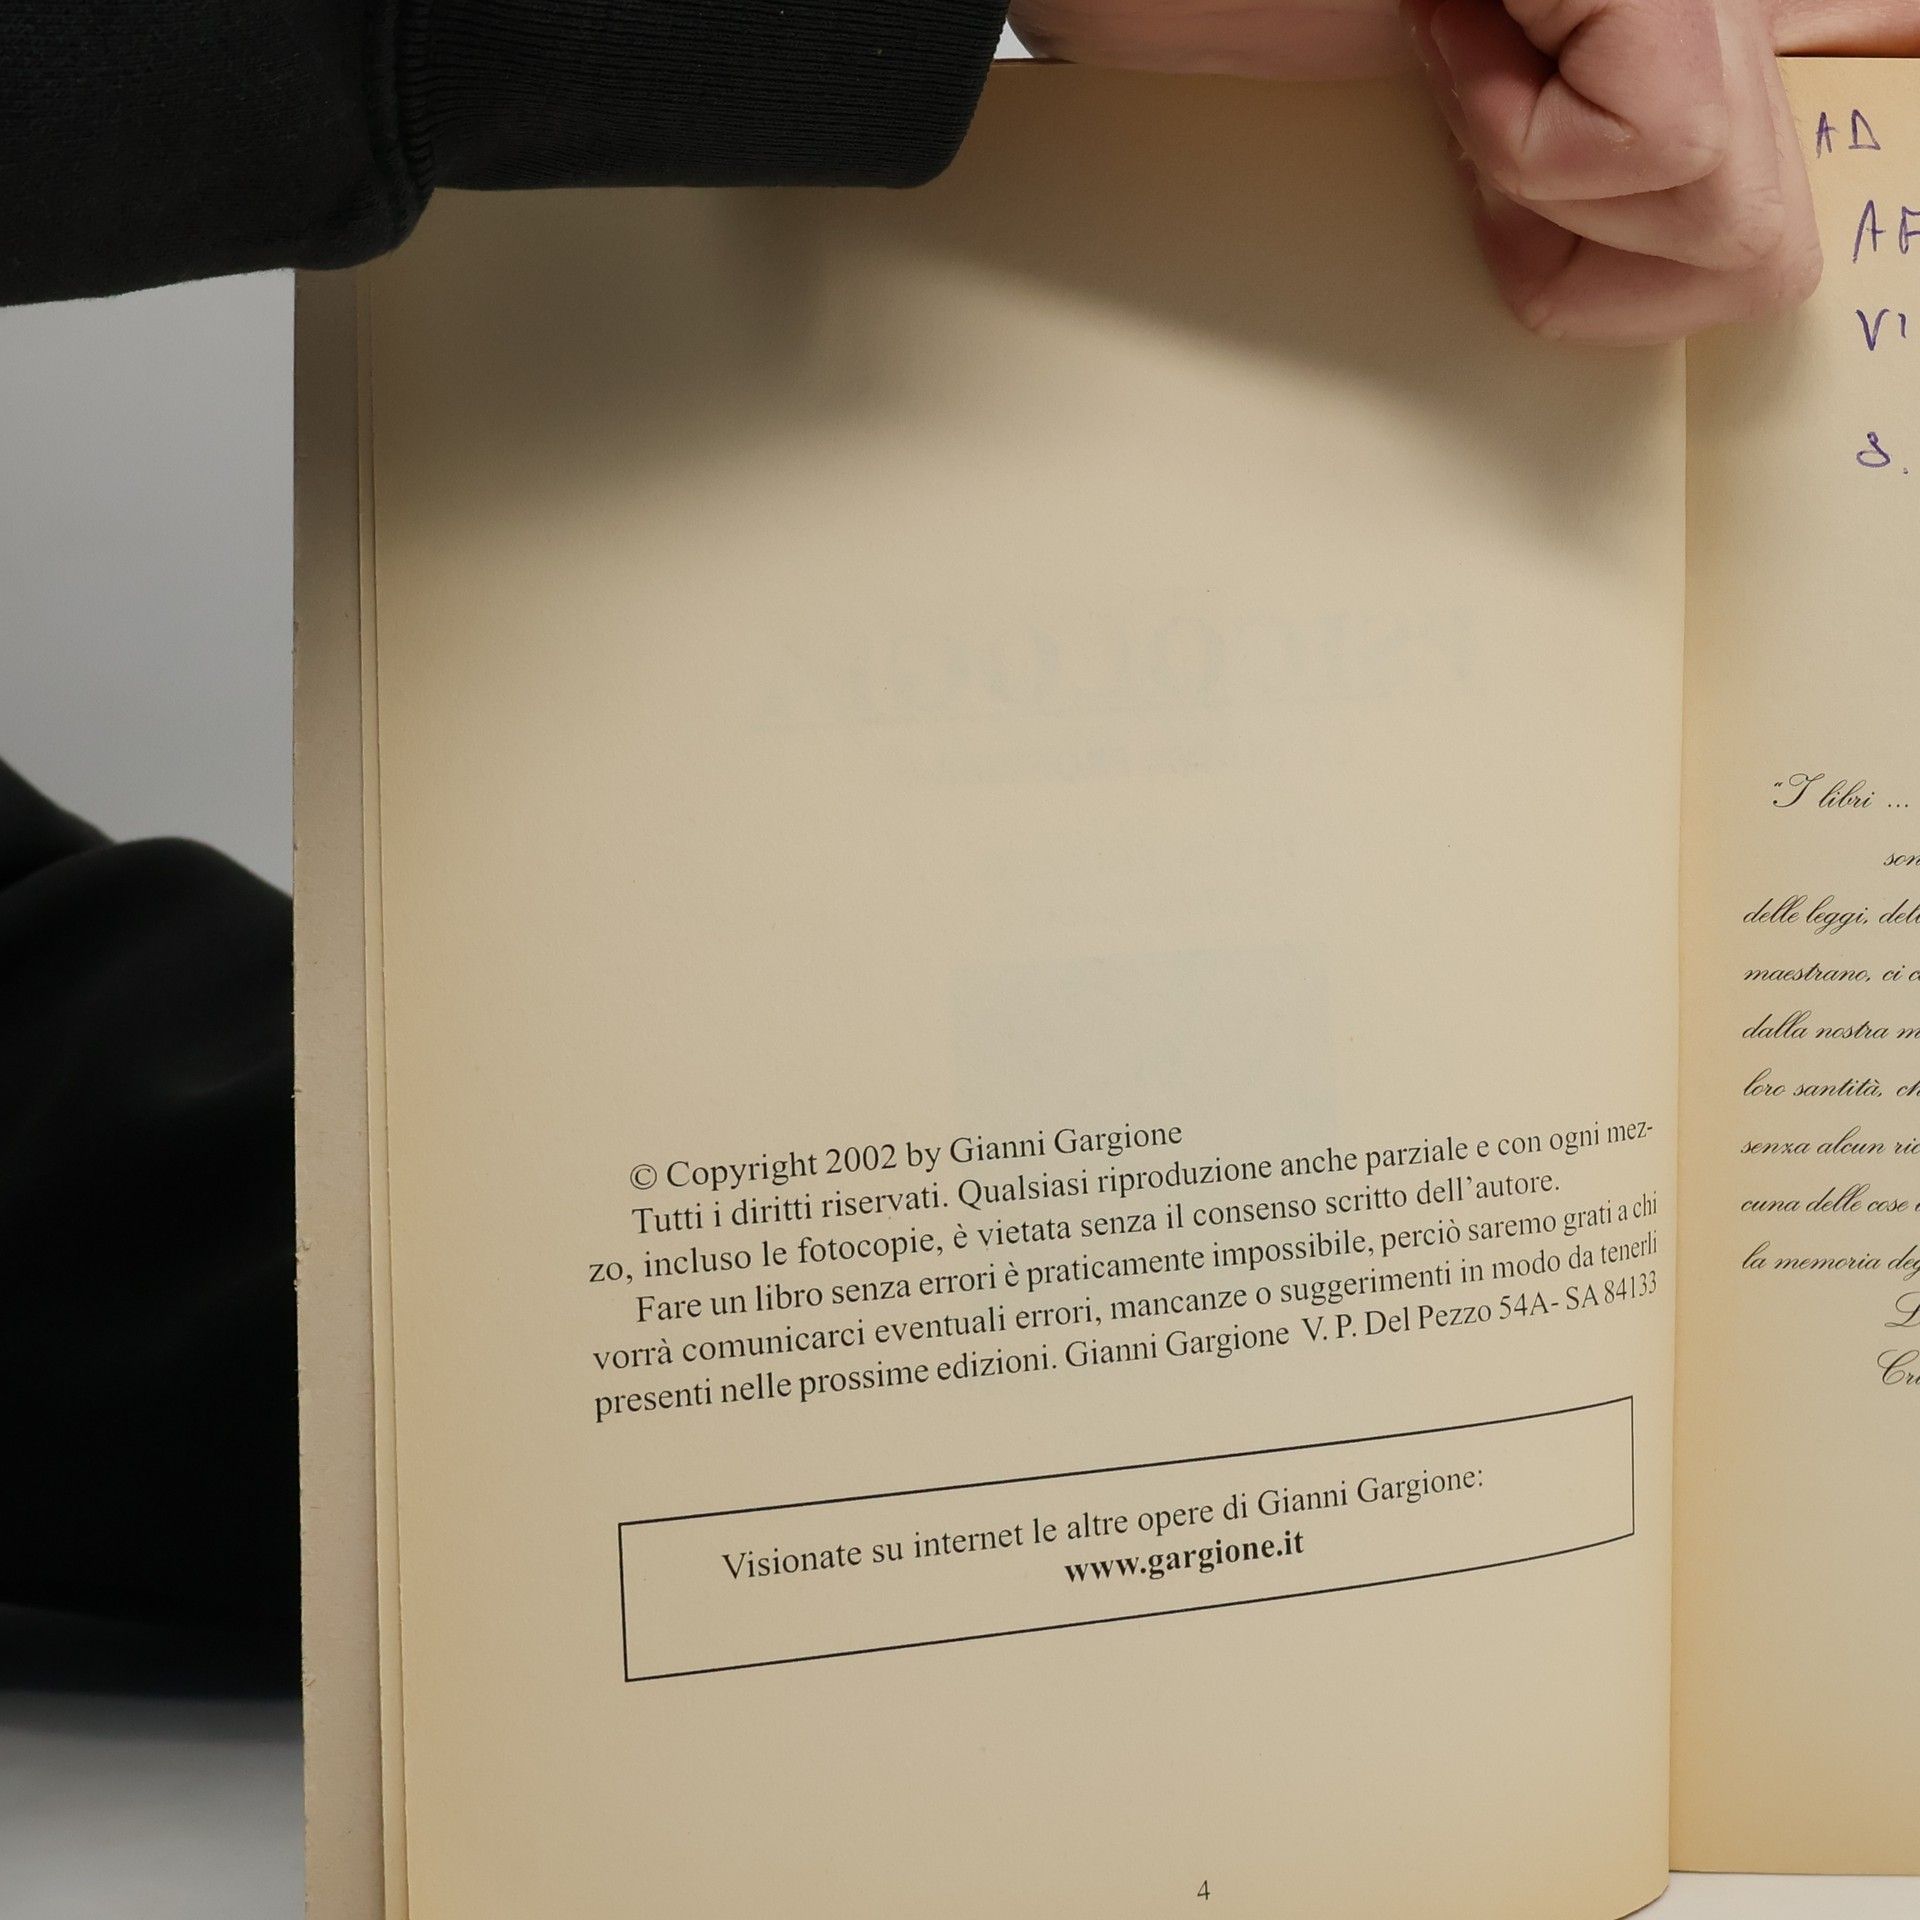 © Copyright 2002 by Gianni Gargione
Tutti i diritti riservati. Qualsiasi riproduzione anche parziale e con ogni mez-
zo, incluso le fotocopie, è vietata senza il consenso scritto dell'autore.
Fare un libro senza errori è praticamente impossibile, perciò saremo grati a chi
vorrà comunicarci eventuali errori, mancanze o suggerimenti in modo da tenerli
presenti nelle prossime edizioni. Gianni Gargione V. P. Del Pezzo 54A- SA 84133
Visionate su internet le altre opere di Gianni Gargione:
www.gargione.it
4
AD
"I libri ...
delle leggi,
maestrano,
dalla nostra
loro santità,
senza alcun
cuna delle cose
la memoria